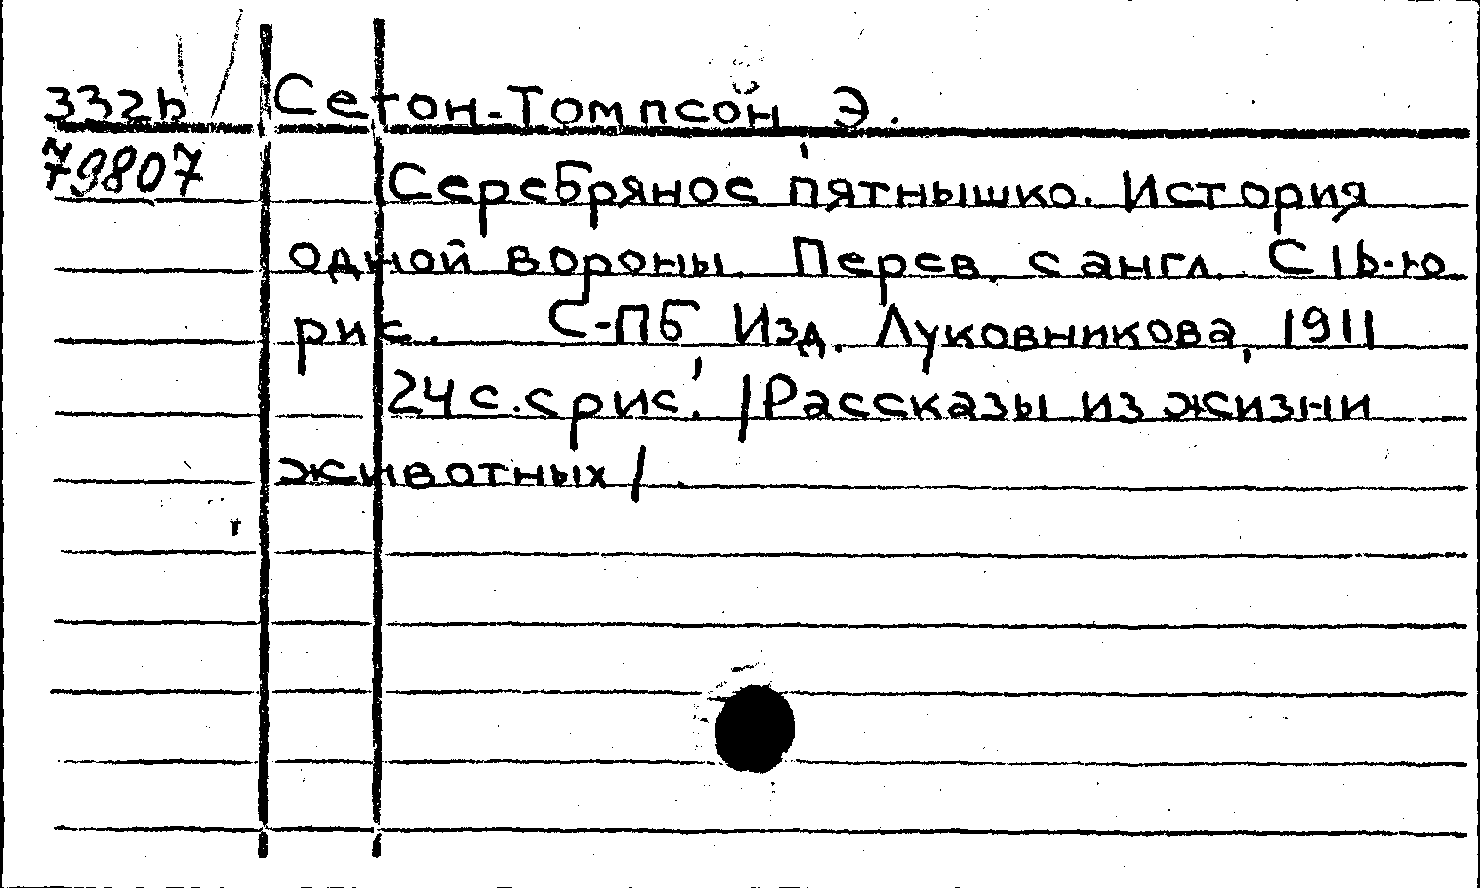 332b Сетон-Томпсон Э.
79807 Серебряное пятнышко. История
одной вороны. Перев. с англ. С 16-ю
рис. С-ПБ, Изд. Луковникова, 1911
24 с. с рис. /Рассказы из жизни
животных/.